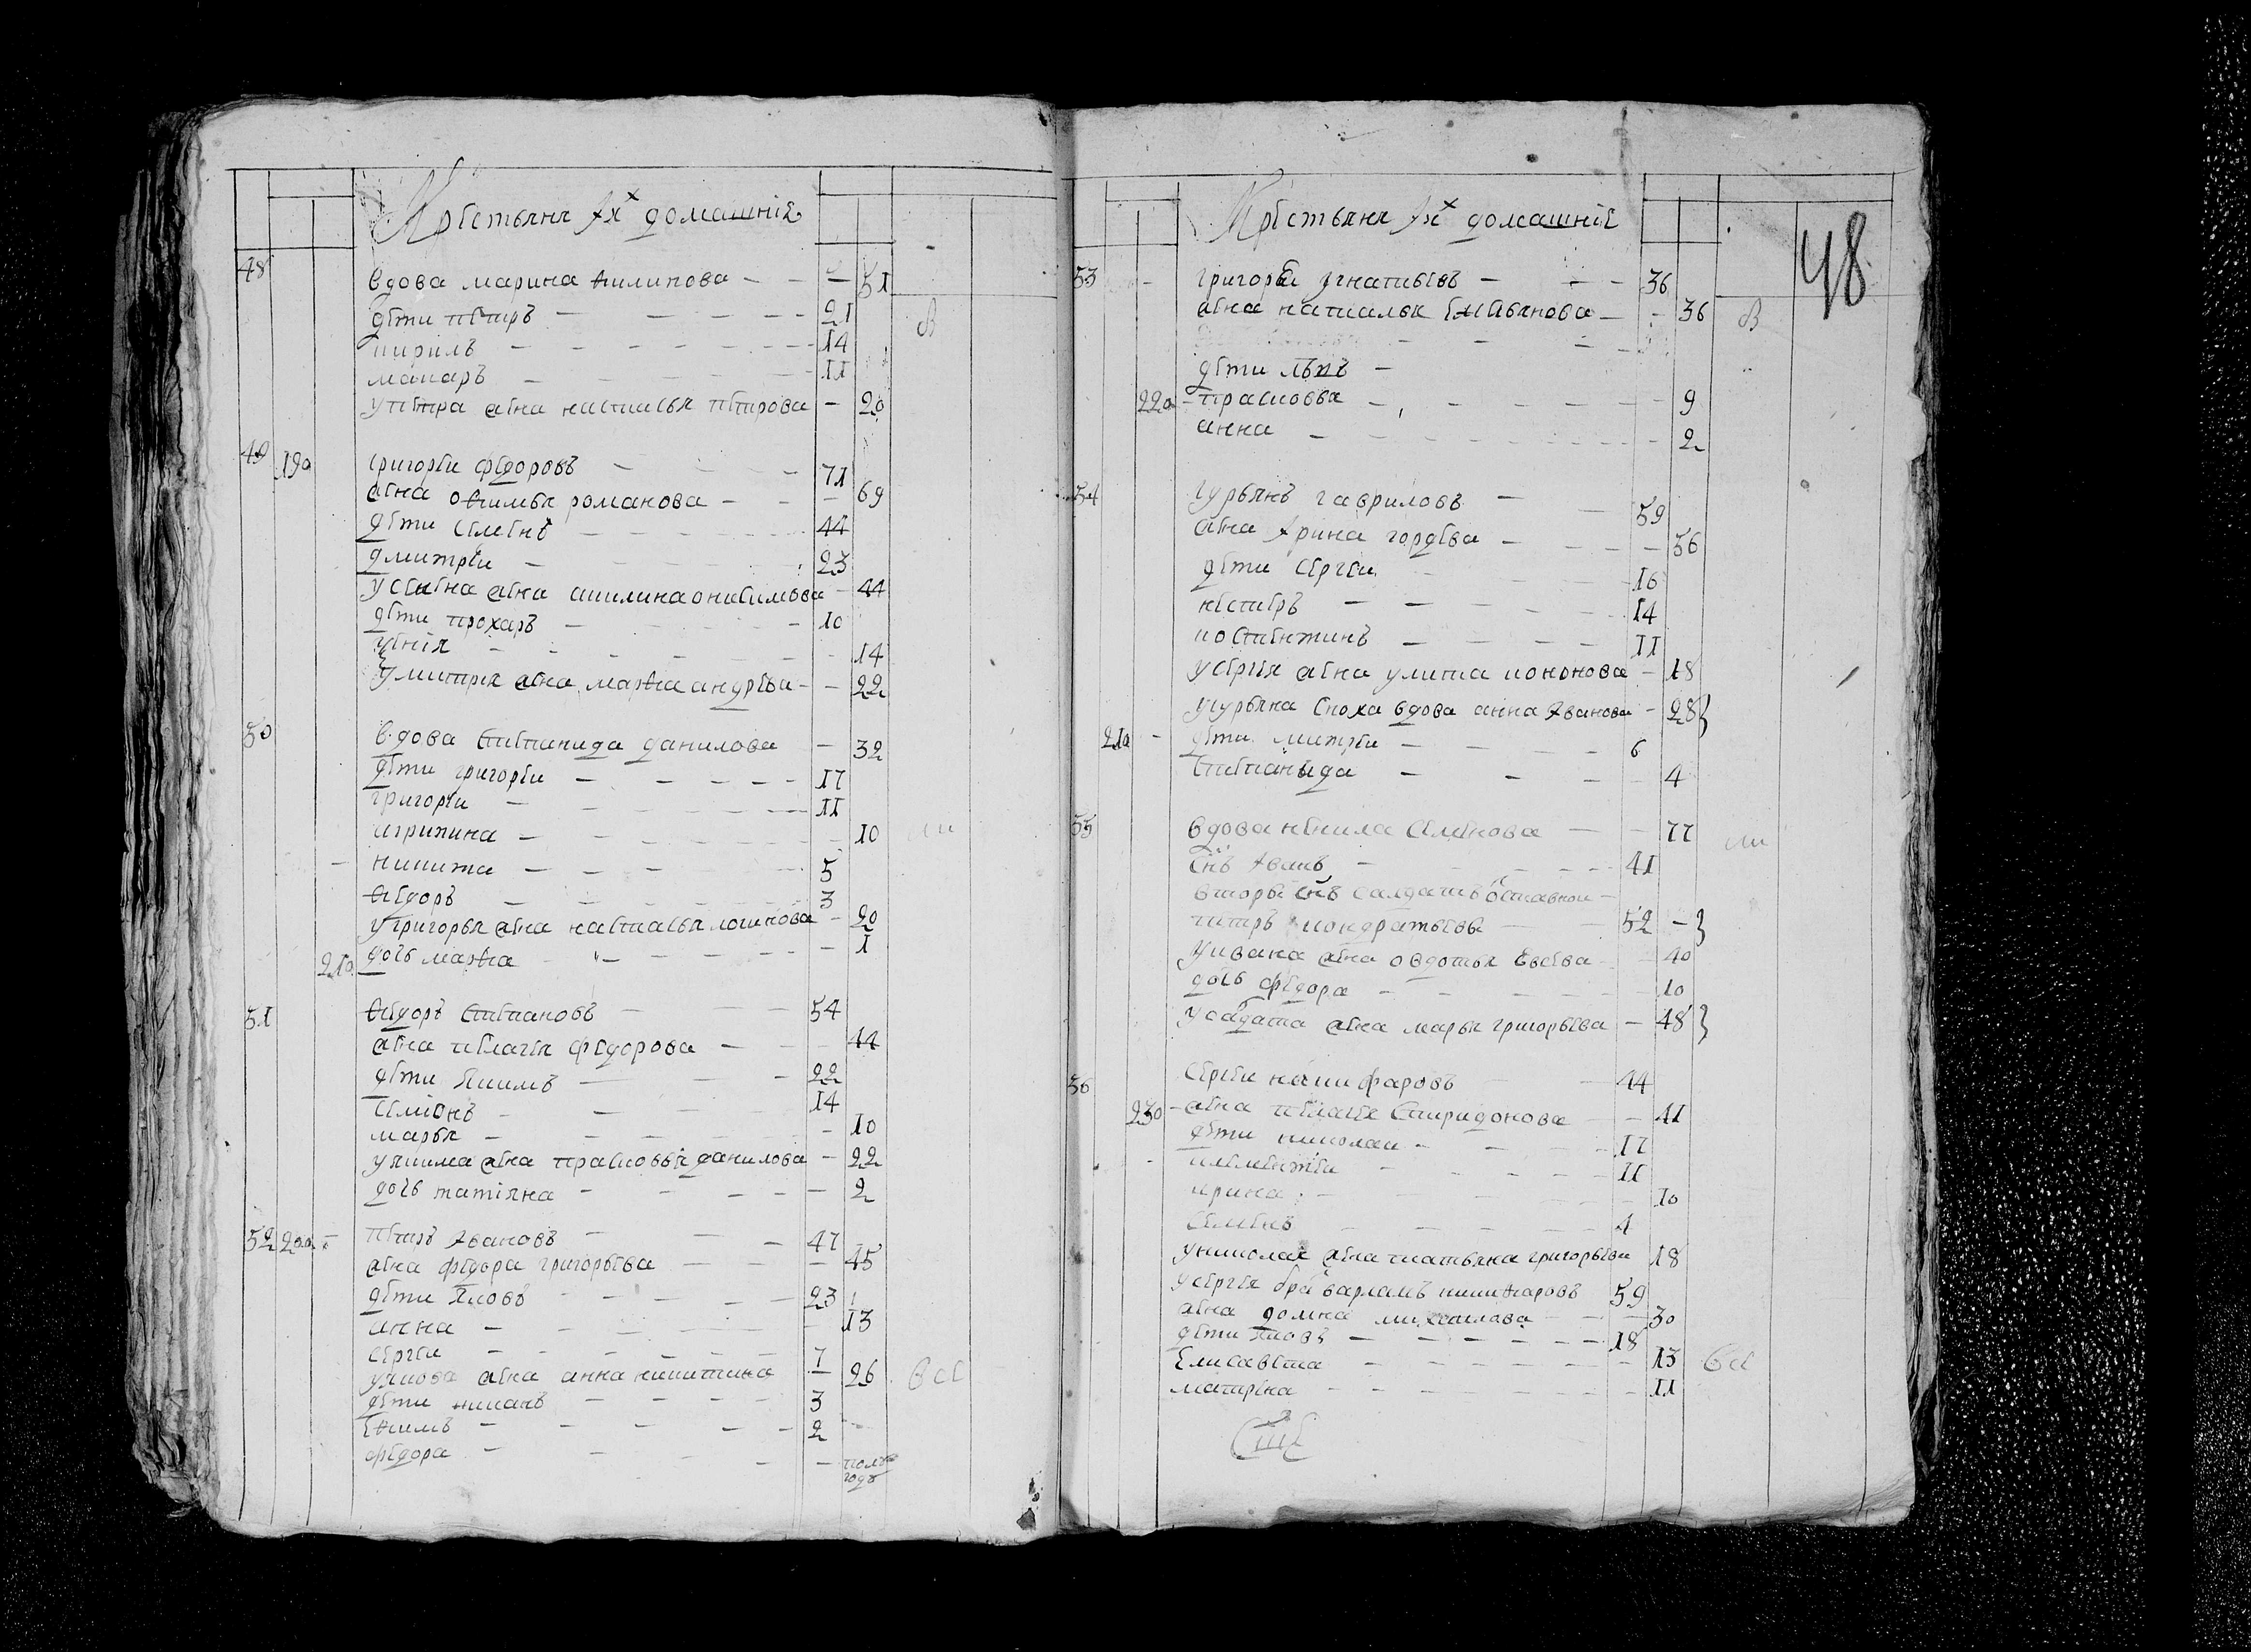 Крестьяня Ихъ домашние
48 вдова марина филипова — 51
дети петръ — 21
кирилъ — 14
макаръ — 11
у петра жена настасья петрова — 20
49 190 григореи федоровъ — 71
жена офимья романова — 69
дети семенъ — 44
дмитреи — 23
у семена жена акилина онисимова — 44
дети прохаръ — 10
14
у митрея жена марфа андреева — 22
50 вдова степанида данилова — 32
дети григореи — 17
григореи — 11
агрипина — 10
никита — 5
федоръ — 3
у григорья жена настасья логинова — 20
210 дочь марфа — 1
51 федоръ степановъ — 54
жена пелагея федорова — 44
дети якимъ — 22
семионъ — 14
марья — 10
у якима жена прасковья данилова — 22
дочь татияна — 2
52 200 петръ Ивановъ — 47
жена федора григорьева — 45
дети яковъ — 23
анна — 13
сергеи — 7
у якова жена анна никитина — 26 все
дети — 3
ефимъ — 2
федора — полъ годъ
48
Крестьяня Ихъ домашние
53 григореи Игнатьевъ — 36
жена наталья емельянова — 36
дети львъ —
220 прасковья — 9
анна — 2
54 гурьянъ гавриловъ — 59
жена Ирина гордева — 56
дети сергеи — 16
нестеръ — 14
костентинъ — 11
у сергея жена улита кононова — 18
у гурьяна сноха вдова анна Иванова — 28
210 дети митреи — 6
степанида — 4
55 вдова ненила семенова — 77
снъ Иванъ — 41
вторы снъ салдатъ оставнои
петръ кондратьевъ — 52
у ивана жена овдотья Евсева — 40
дочь федора — 10
у солдата жена марья григорьева — 48
56 сергеи никифаровъ — 44
230 жена пелагея спиридонова — 41
дети николаи — 17
клементеи — 11
ирина — 10
семенъ — 4
у николая жена татьяна григорьева 18
у сергея братъ варламъ никифаровъ 59
жена домна михаилова — 30
дети яковъ — 18
елисавета — 13 все
матрена — 11